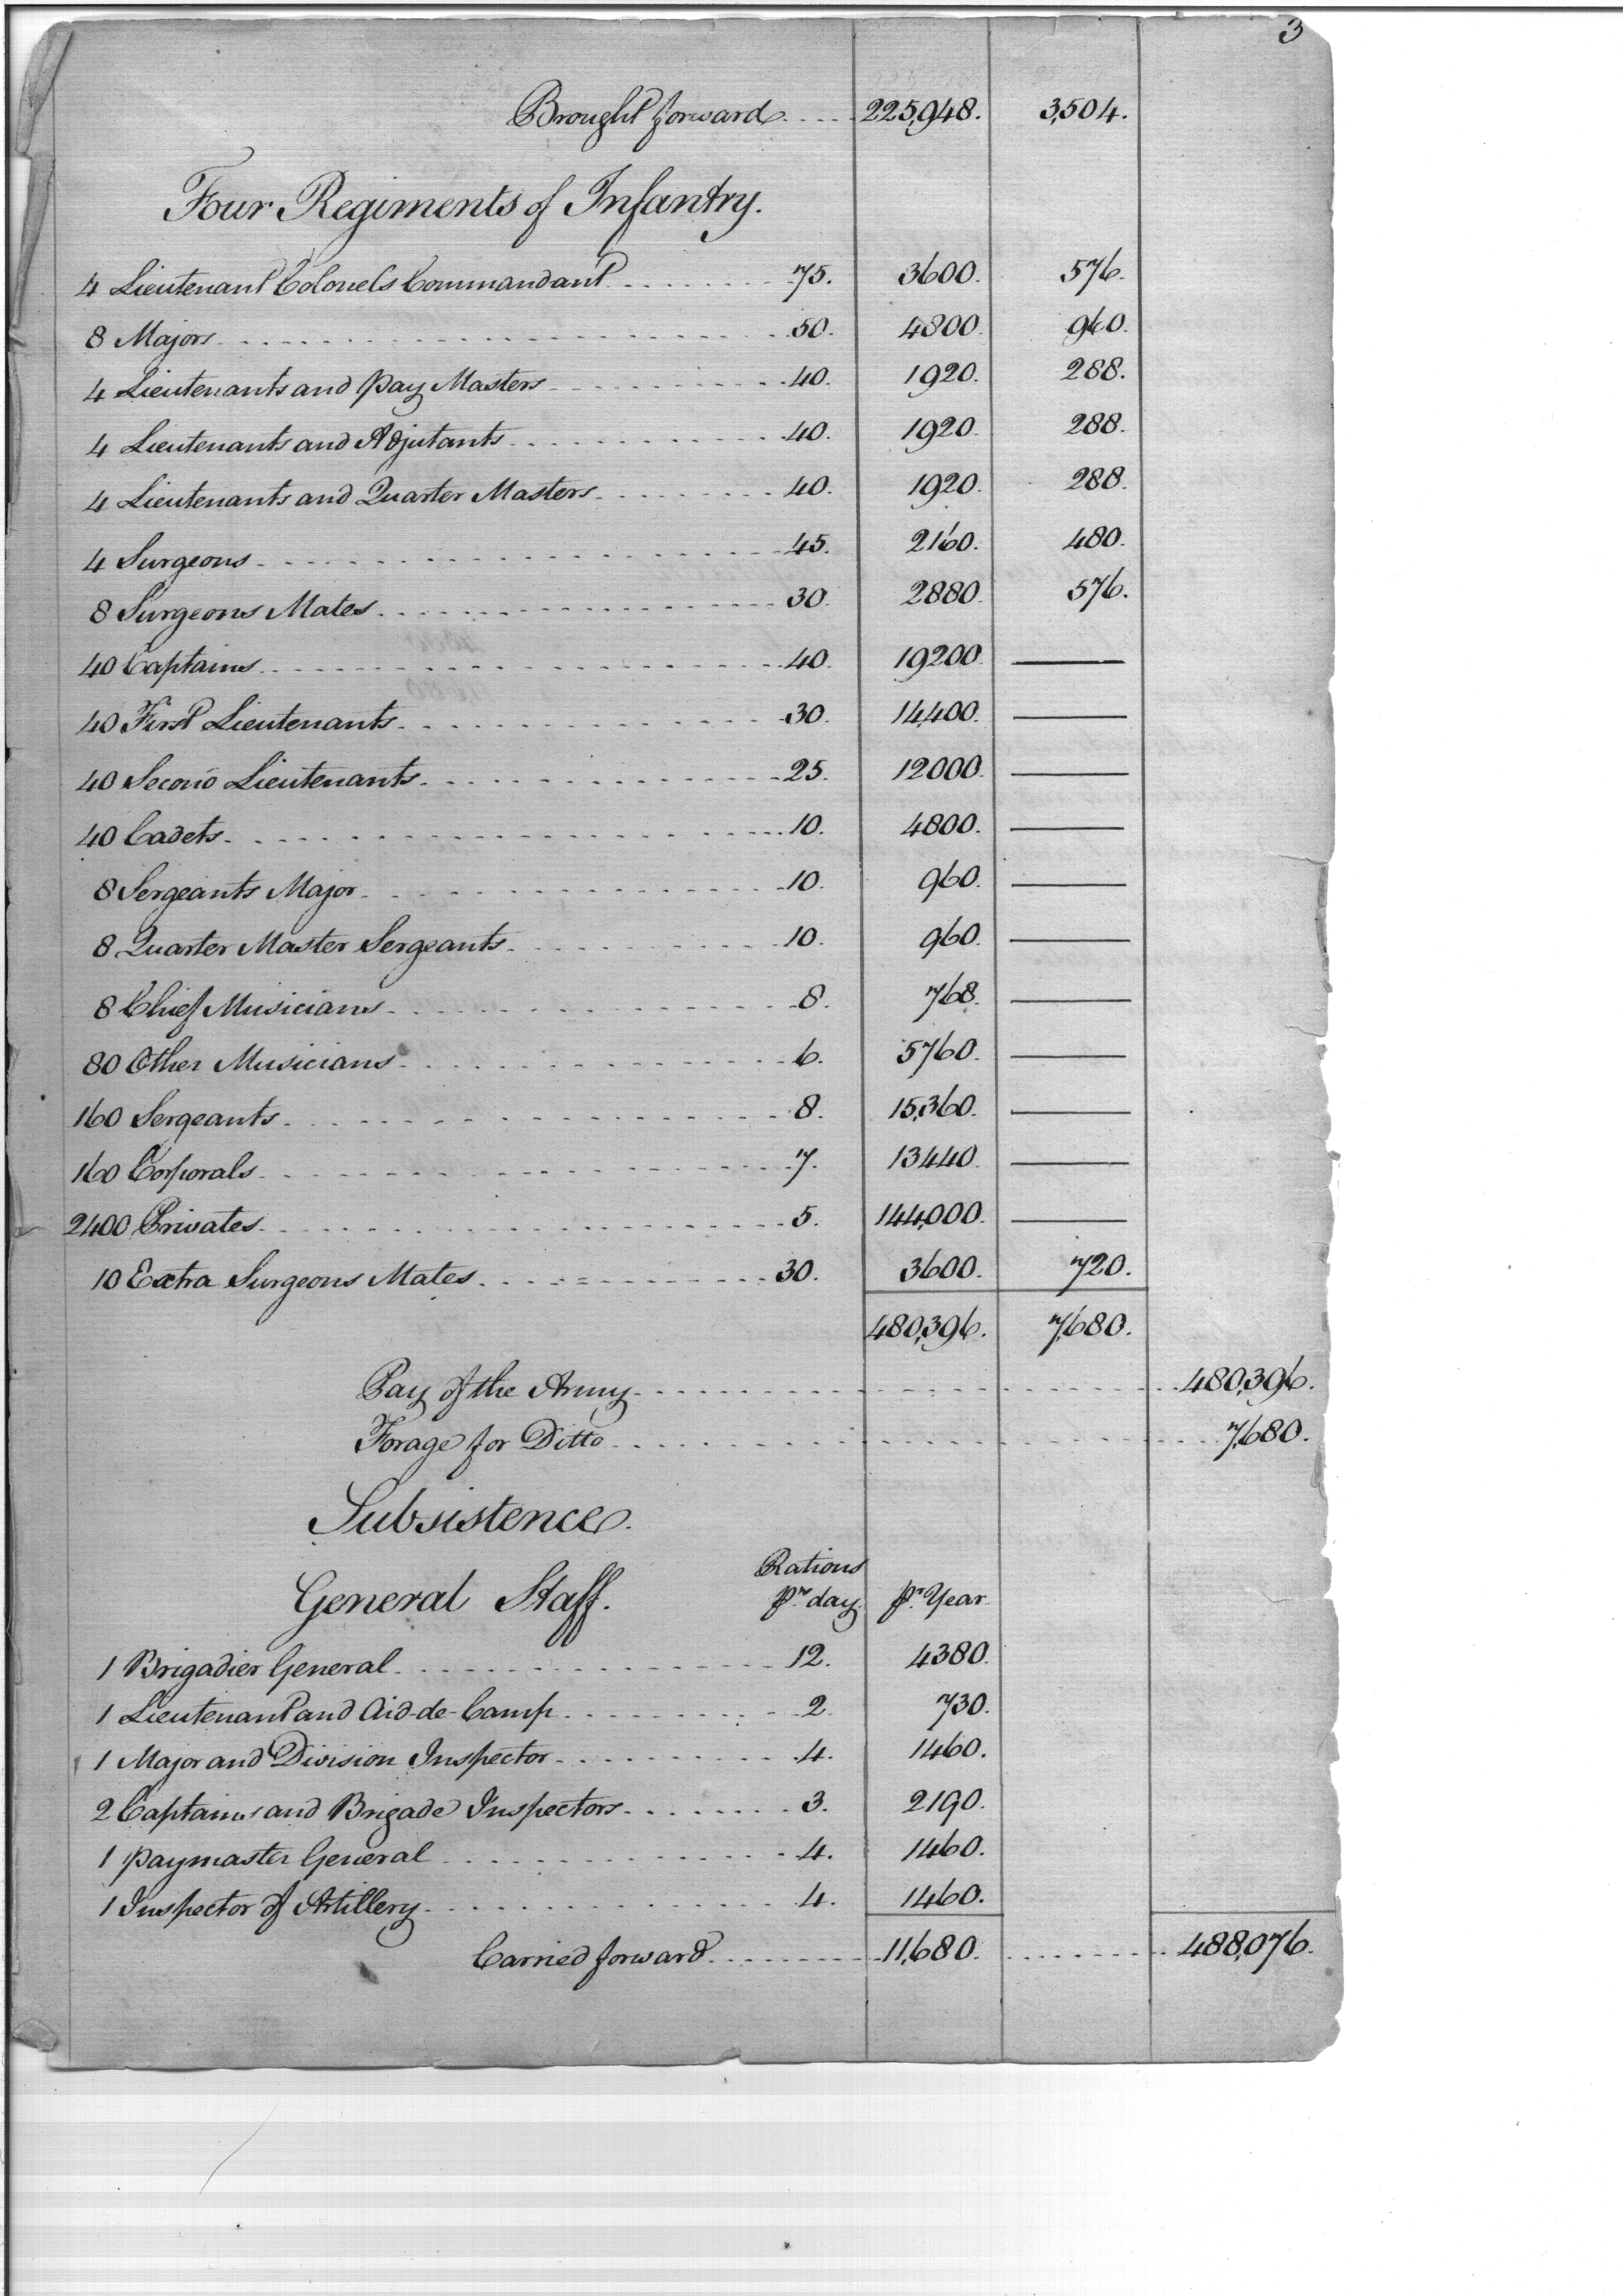 3
Brought forward 225,948. 3,504.
Four Regiments of Infantry.
4 Lieutenant Colonels Commandant 75. 3600. 576.
8 Majors 50. 4800. 960.
4 Lieutenants and Pay Masters 40. 1920. 288.
4 Lieutenants and Adjutants 40. 1920. 288.
4 Lieutenants and Quarter Masters 40. 1920. 288.
4 Surgeons 45. 2160. 480.
8 Surgeons Mates 30. 2880. 576.
40 Captains 40. 19200.
40 First Lieutenants 30. 14,400.
40 Second Lieutenants 25. 12000.
40 Cadets 10. 4800.
8 Sergeants Major 10. 960.
8 Quarter Master Sergeants 10. 960.
8 Chief Musicians 8. 768.
80 Other Musicians 6. 5760.
160 Sergeants 8. 15,360.
160 Corporals 7. 13440.
2400 Privates 5. 144,000.
10 Extra Surgeons Mates 30. 3600. 720.
480,396. 7,680.
Pay of the Army 480,396.
Forage for Ditto 7,680.
Subsistence.
Rations
General Staff. pr. day. pr. Year
1 Brigadier General 12. 4380.
1 Lieutenant and Aid-de-Camp 2 730.
1 Major and Division Inspector 4. 1460.
2 Captains and Brigade Inspectors 3. 2190.
1 Paymaster General 4. 1460.
1 Inspector of Artillery 4. 1460.
Carried forward 11,680. 488,076.